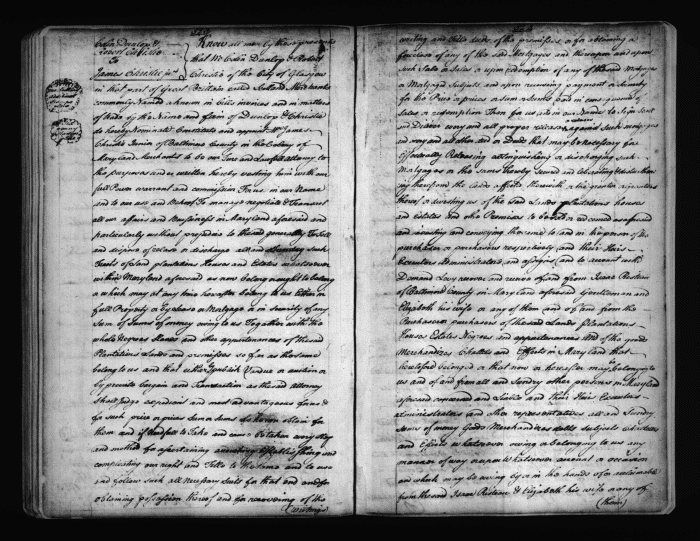 Colin Dunlop &
Robert Christie
To
James Christie jnr
Know all men by these presents
that We Colin Dunlop & Robert
Christie of the City of Glasgow
in that part of Great Britain called Scotland Merchants
commonly Named & known in Bills invoices and in matters
of trade by the Name and firm of Dunlop & Christie
do hereby Nominate Constitute and appoint Mr James
Christie Junior of Baltimore County in the Colony of
Maryland Merchant to be our true and Lawfull attorney to
the purposes and as written hereby vesting him with our
full Power warrant and commission For us in our Name
and to our use and Behoof To manage negotiate & Transact
all our affairs and Business in Maryland aforesaid and
particularly without prejudice to the said generality To Sell
and dispose of release or discharge all and such
Tracts of Land plantations Houses and Estates whatsoever
within Maryland aforesaid as now belong to
or which may at any time hereafter belong to us Either in
full Property or by Lease or Mortgage or in security of any
Sum or Sums of money owing to us Together with the
whole Negroes Slaves and other appurtenances of the said
Plantations Lands and premisses so far as the same
belong to us and that either by publick Vendue or auction or
by private bargain and Transaction as the said attorney
shall judge expedient and most advantageous for us &
for such price or prices Sum or Sums he can obtain for
them and if needful to Take and cause be taken every step
and method for ascertaining Establishing and
compleating our right and Title to the same and to use
and follow such all necessary Suits for that end and for
obtaining possession thereof and for recovering of the
writings
writing and title deeds of the premisses or for obtaining a
foreclosure of any of the said Mortgages and thereupon and upon
such Sale or Sales or upon redemption of any of the said Mortgages
or Mortgaged Subjects and upon receiving payment or Security
for the Price or prices or Sum or Sums paid in consequence of
sales or redemption Then for us and in our Names to Sign Seal
and Deliver every and all proper releases and such
and every and all other and Deeds that may be necessary for
Effectually Releasing extinguishing or discharging such
Mortgages or the Sums thereby Secured and
therefrom the Lands affected therewith or the greater
thereof or divesting us of the said Lands plantations houses
and estates and other Premises to be Sold or as aforesaid
and investing and conveying the same to and in the person of the
purchaser or purchasers respectively and their Heirs
Executors Administrators and assigns and to account with
Demand Levy recover and receive of and from Isaac Risteau
of Baltimore County in Maryland aforesaid Gentleman and
Elizabeth his wife or any of them and of and from the
Purchaser or purchasers of the said Lands Plantations
Houses Estates Negroes and appurtenances and of the goods
Merchandizes Chattels and Effects in Maryland that
heretofore belonged or that now or hereafter may belong to
us and of and from all and Sundry other persons in Maryland
aforesaid concerned and Such and their Heirs Executors
administrators and other representatives all and Sundry
Sums of money Goods Merchandizes debts subjects whatsoever
and Effects whatsoever owing or belonging to us any
manner of way or upon whatsoever account or occasion
and which may be owing by or in the hands of or sustainable
from the said Isaac Risteau & Elizabeth his wife or any of
them